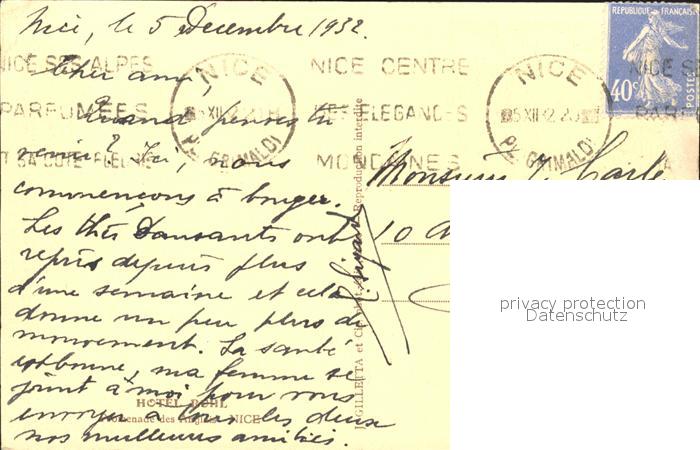 Nice, le 5 Decembre 1932.
Cher ami,
Quand penses tu
venir? Ici, nous
commençons à bouger.
Les thés dansants ont
repris depuis plus
d'une semaine et cela
donne un peu plus de
mouvement. La santé
est bonne, ma femme se
joint à moi pour vous
envoyer à tous les deux
nos meilleures amitiés.
HOTEL RUHL
Promenade des Anglais NICE
NICE SES ALPES
PARFUMÉES
ET SA CÔTE FLEURIE
NICE
PL. GRIMALDI
NICE CENTRE
DES ELEGANCES
MONDAINES
NICE
5 XII 32
PL. GRIMALDI
NICE S
PARF
REPUBLIQUE FRANÇAISE
40c
POSTES
Reproduction interdite
GILLETTA et Cie
Monsieur
10
privacy protection
Datenschutz